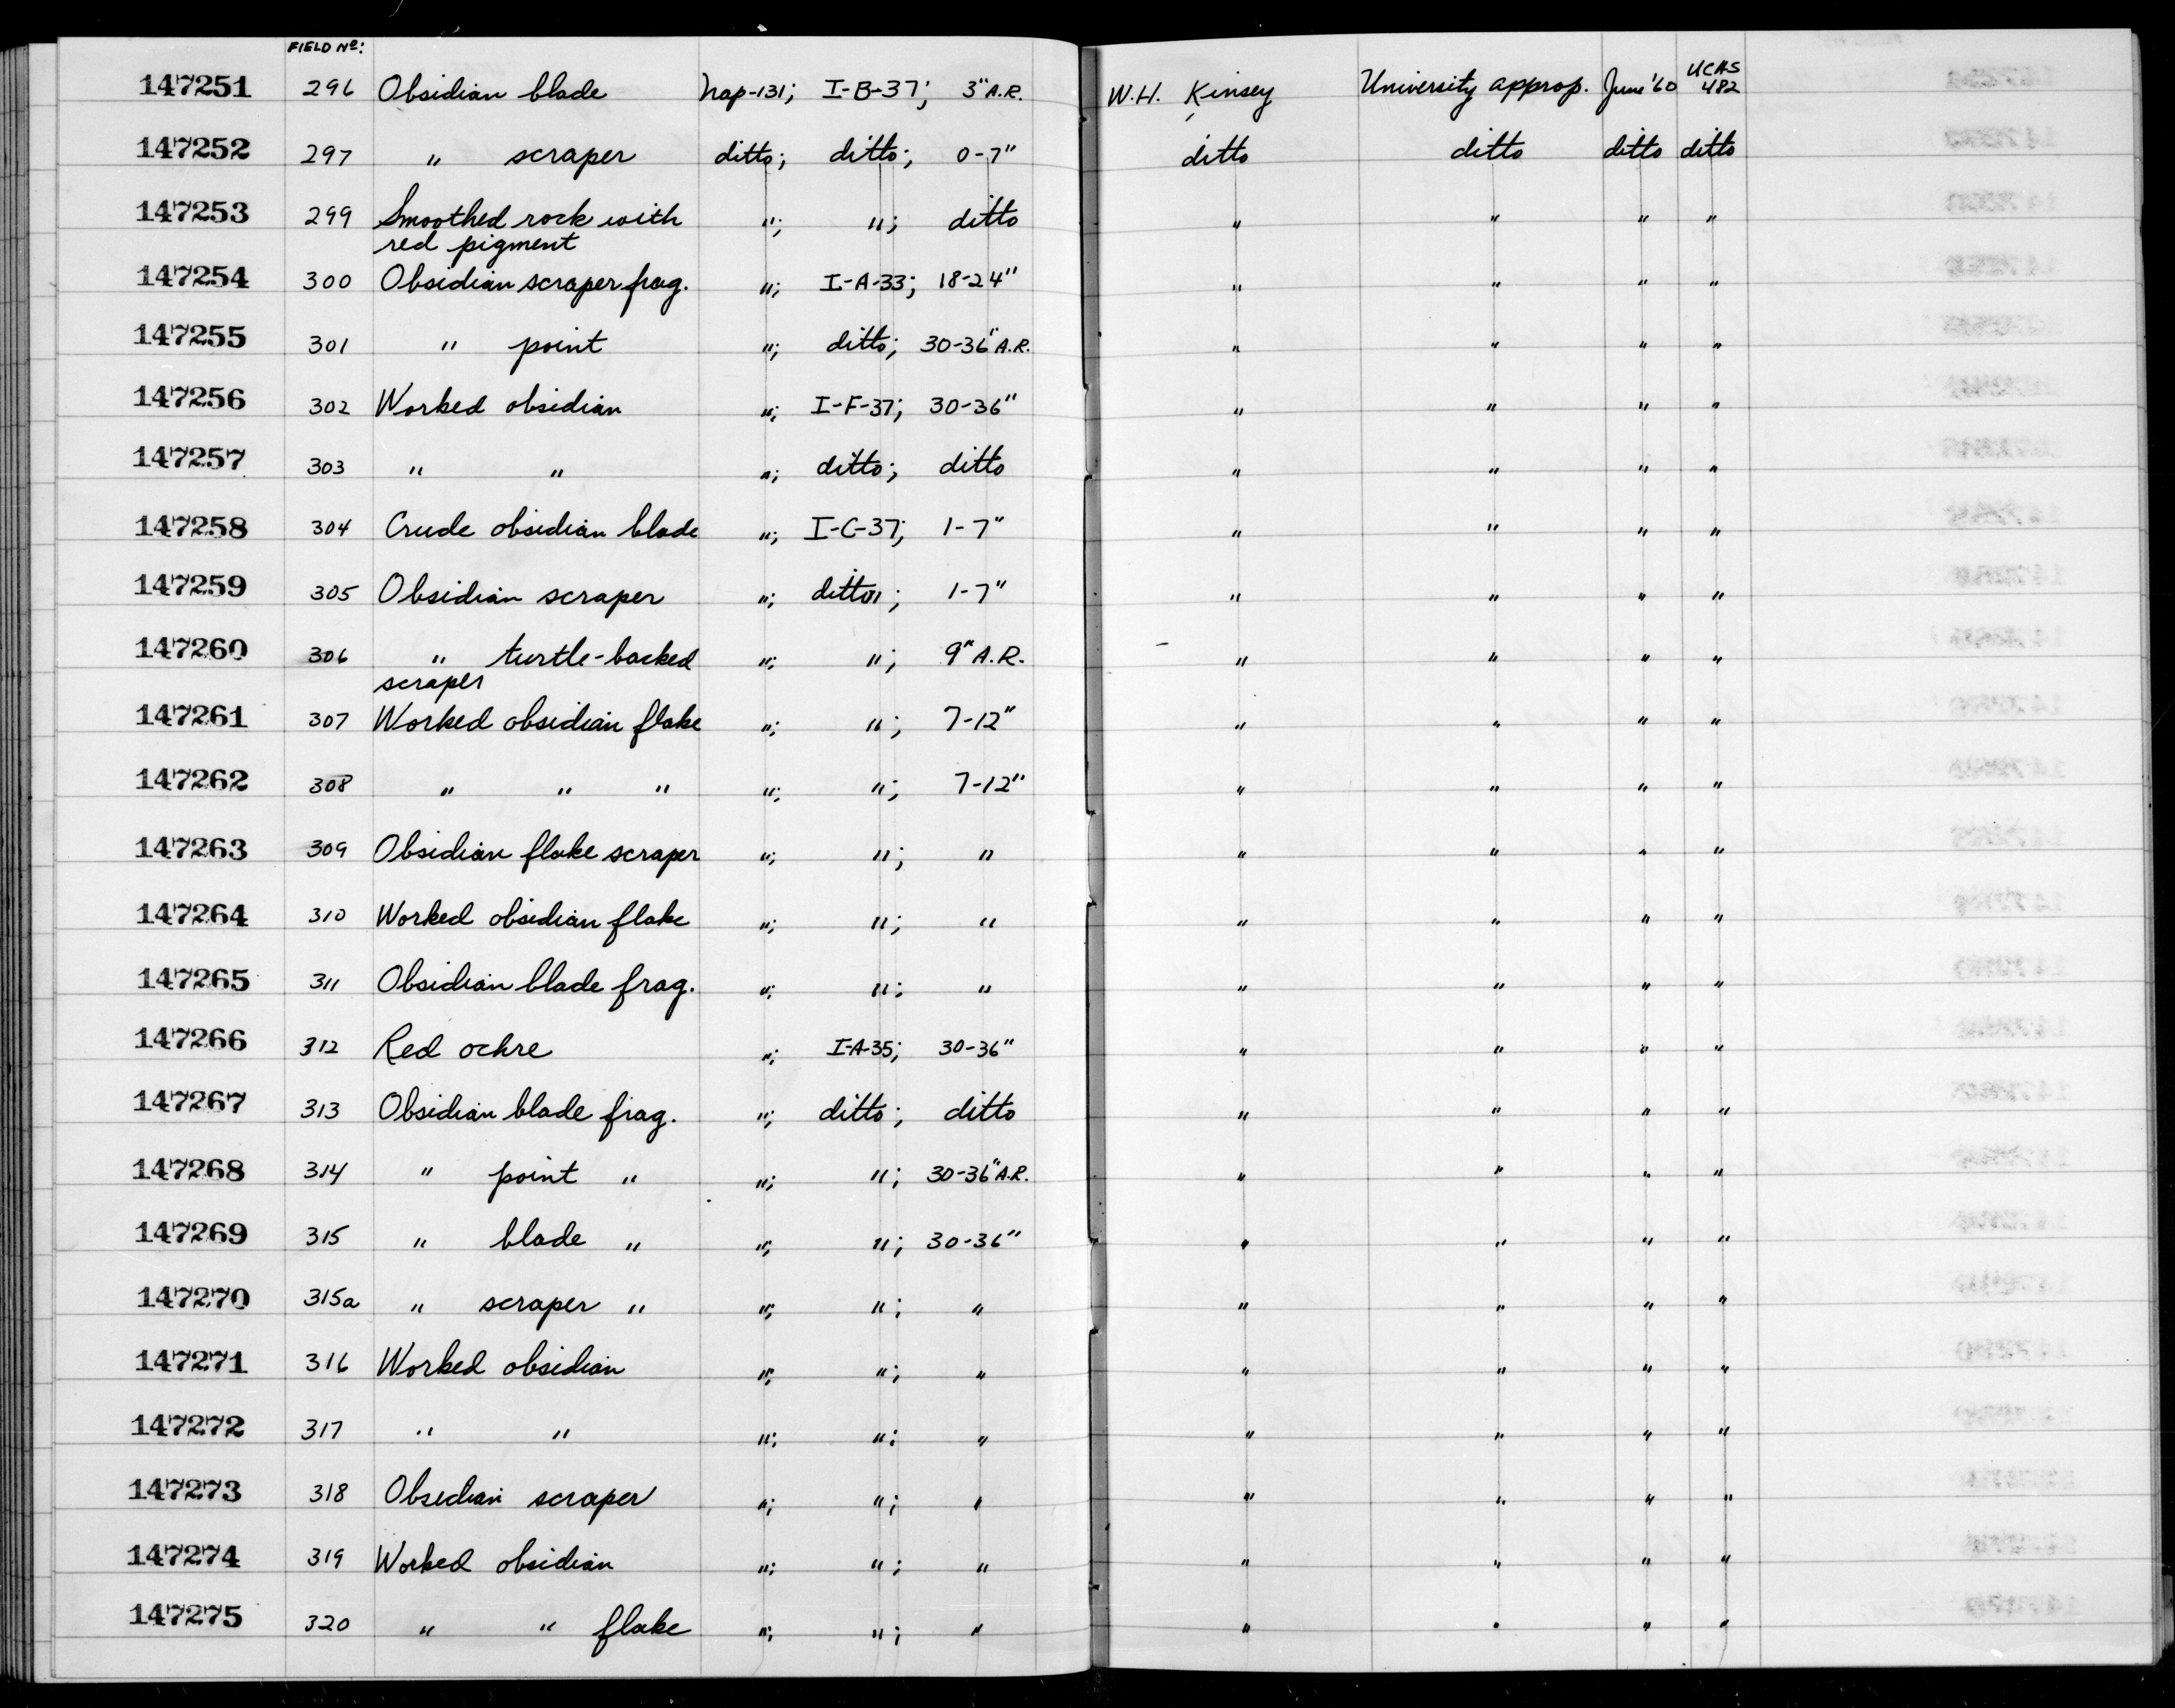 FIELD Nº:
147251 296 Obsidian blade Nap-131; I-B-37; 3" A.R. W.H. Kinsey University approp. June '60 UCAS 482
147252 297 " scraper ditto; ditto; 0-7" ditto ditto ditto ditto
147253 299 Smoothed rock with "; "; ditto " " " "
red pigment
147254 300 Obsidian scraper frag. "; I-A-33; 18-24" " " " "
147255 301 " point "; ditto; 30-36" A.R. " " " "
147256 302 Worked obsidian "; I-F-37; 30-36" " " " "
147257 303 " " "; ditto; ditto " " " "
147258 304 Crude obsidian blade "; I-C-37; 1-7" " " " "
147259 305 Obsidian scraper "; ditto; 1-7" " " " "
147260 306 " turtle-backed "; "; 9" A.R. " " " "
scraper
147261 307 Worked obsidian flake "; "; 7-12" " " " "
147262 308 " " " "; "; 7-12" " " " "
147263 309 Obsidian flake scraper "; "; " " " " "
147264 310 Worked obsidian flake "; "; " " " " "
147265 311 Obsidian blade frag. "; "; " " " " "
147266 312 Red ochre "; I-A-35; 30-36" " " " "
147267 313 Obsidian blade frag. "; ditto; ditto " " " "
147268 314 " point " "; "; 30-36" A.R. " " " "
147269 315 " blade " "; "; 30-36" " " " "
147270 315a " scraper " "; "; " " " " "
147271 316 Worked obsidian "; "; " " " " "
147272 317 " " "; "; " " " " "
147273 318 Obsidian scraper "; "; " " " " "
147274 319 Worked obsidian "; "; " " " " "
147275 320 " " flake "; "; " " " " "